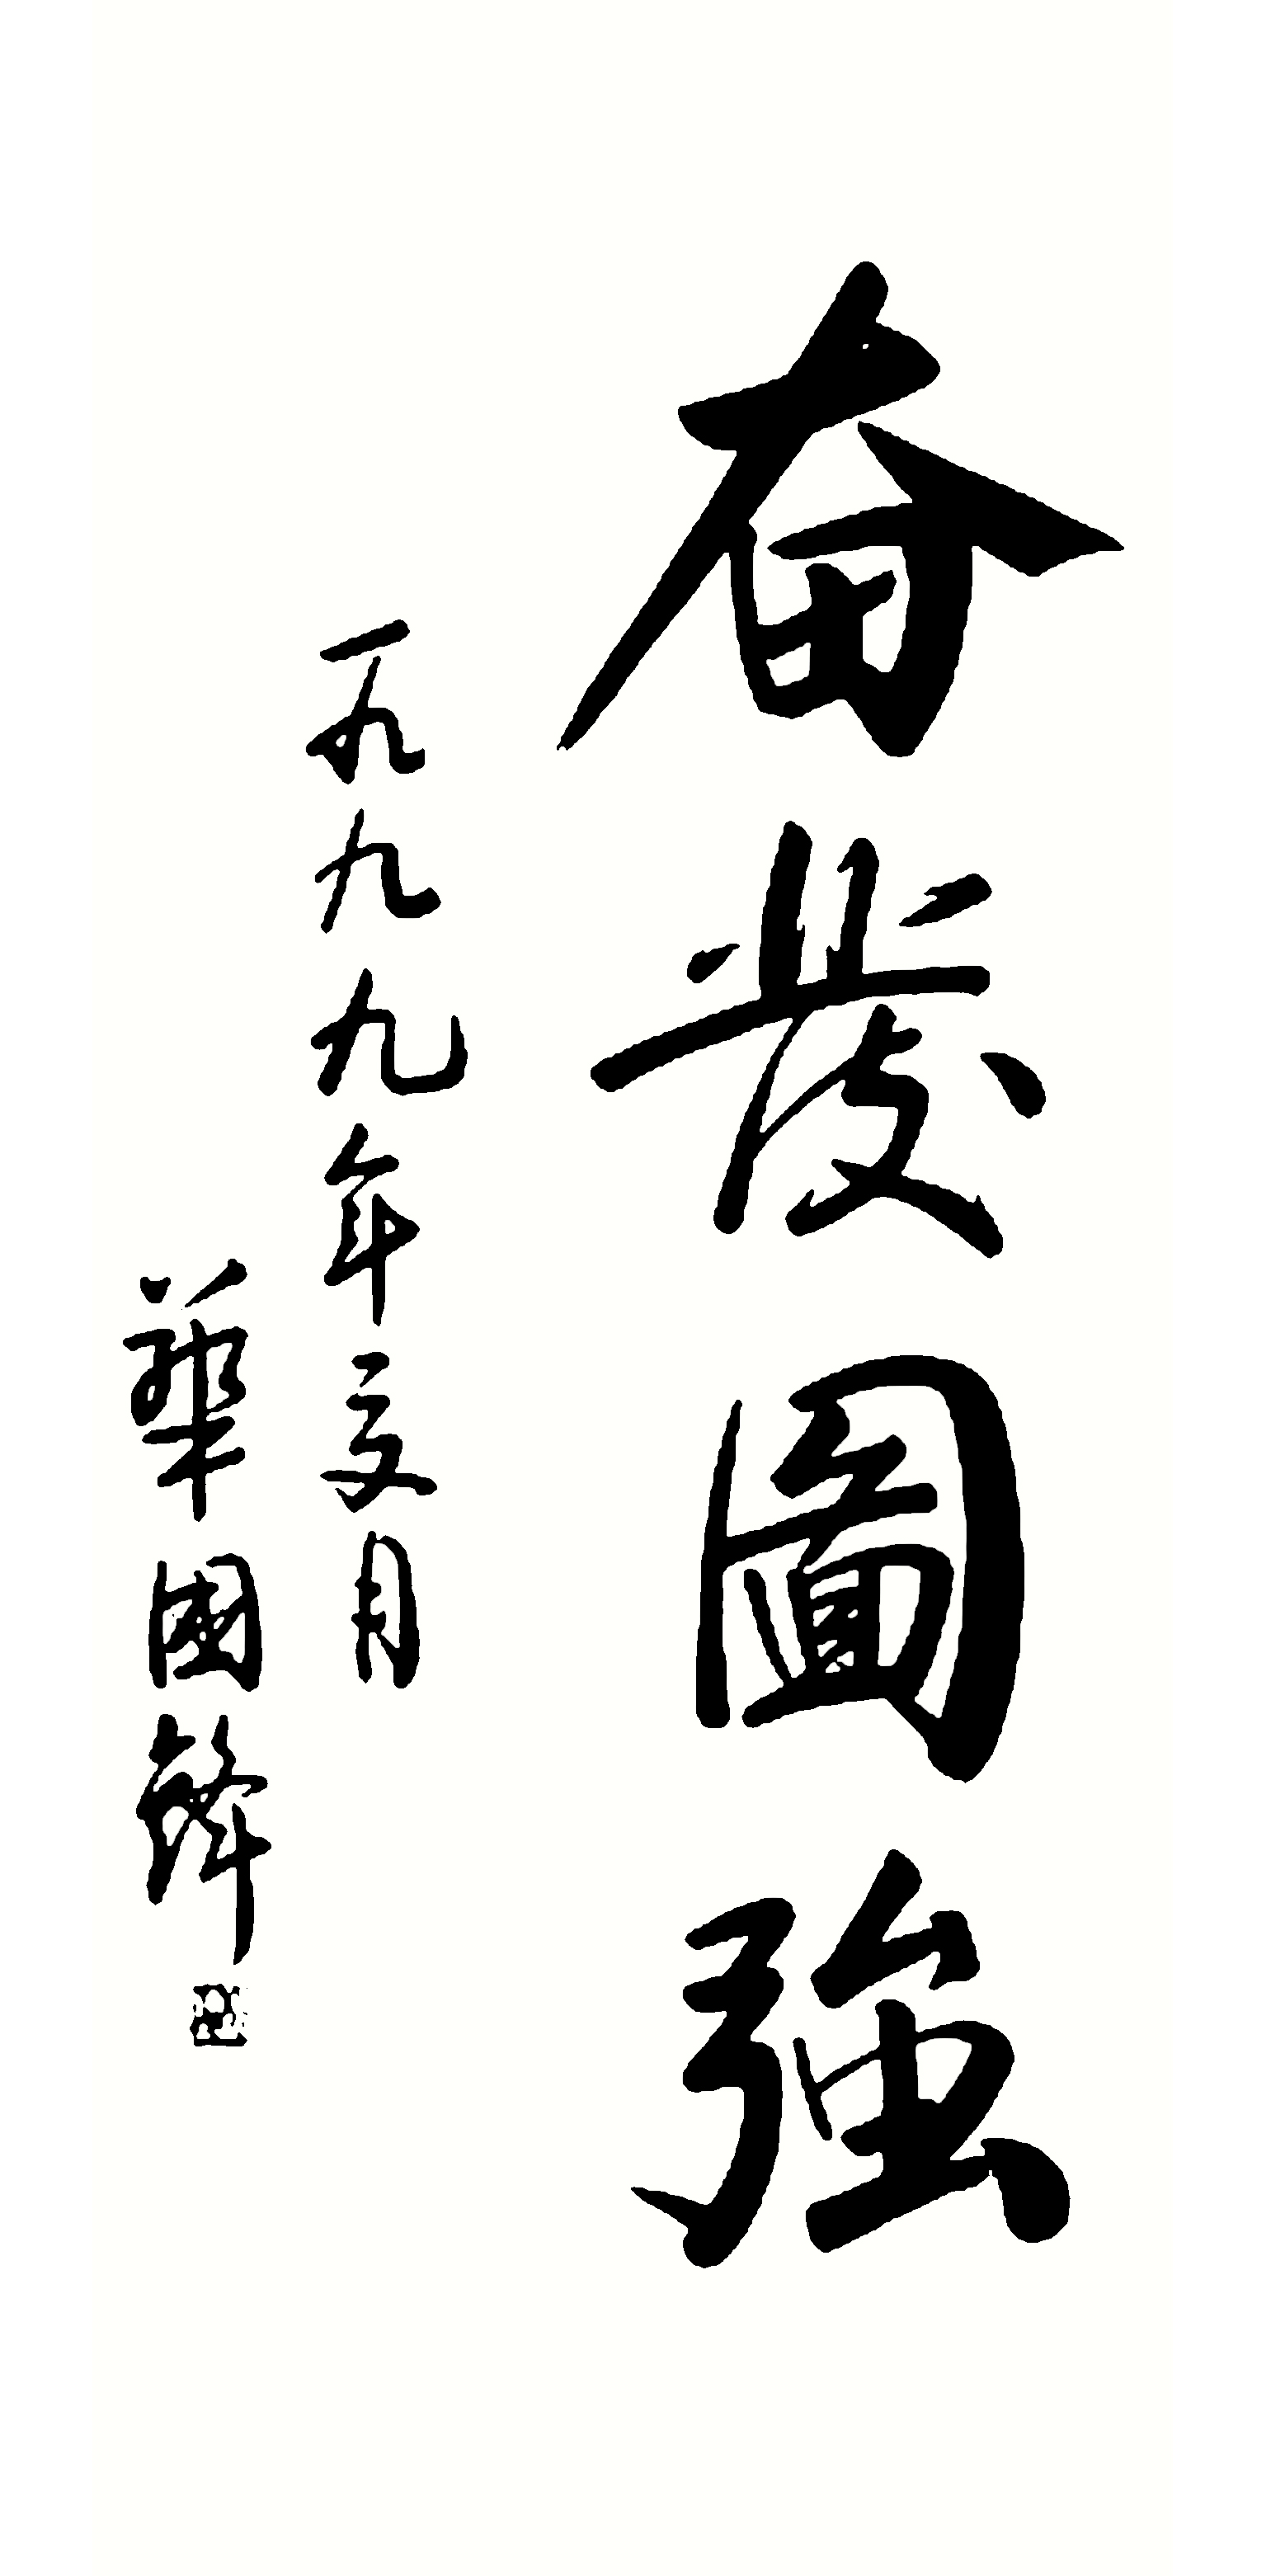 奋發圖強
一九九九年月
華國鋒